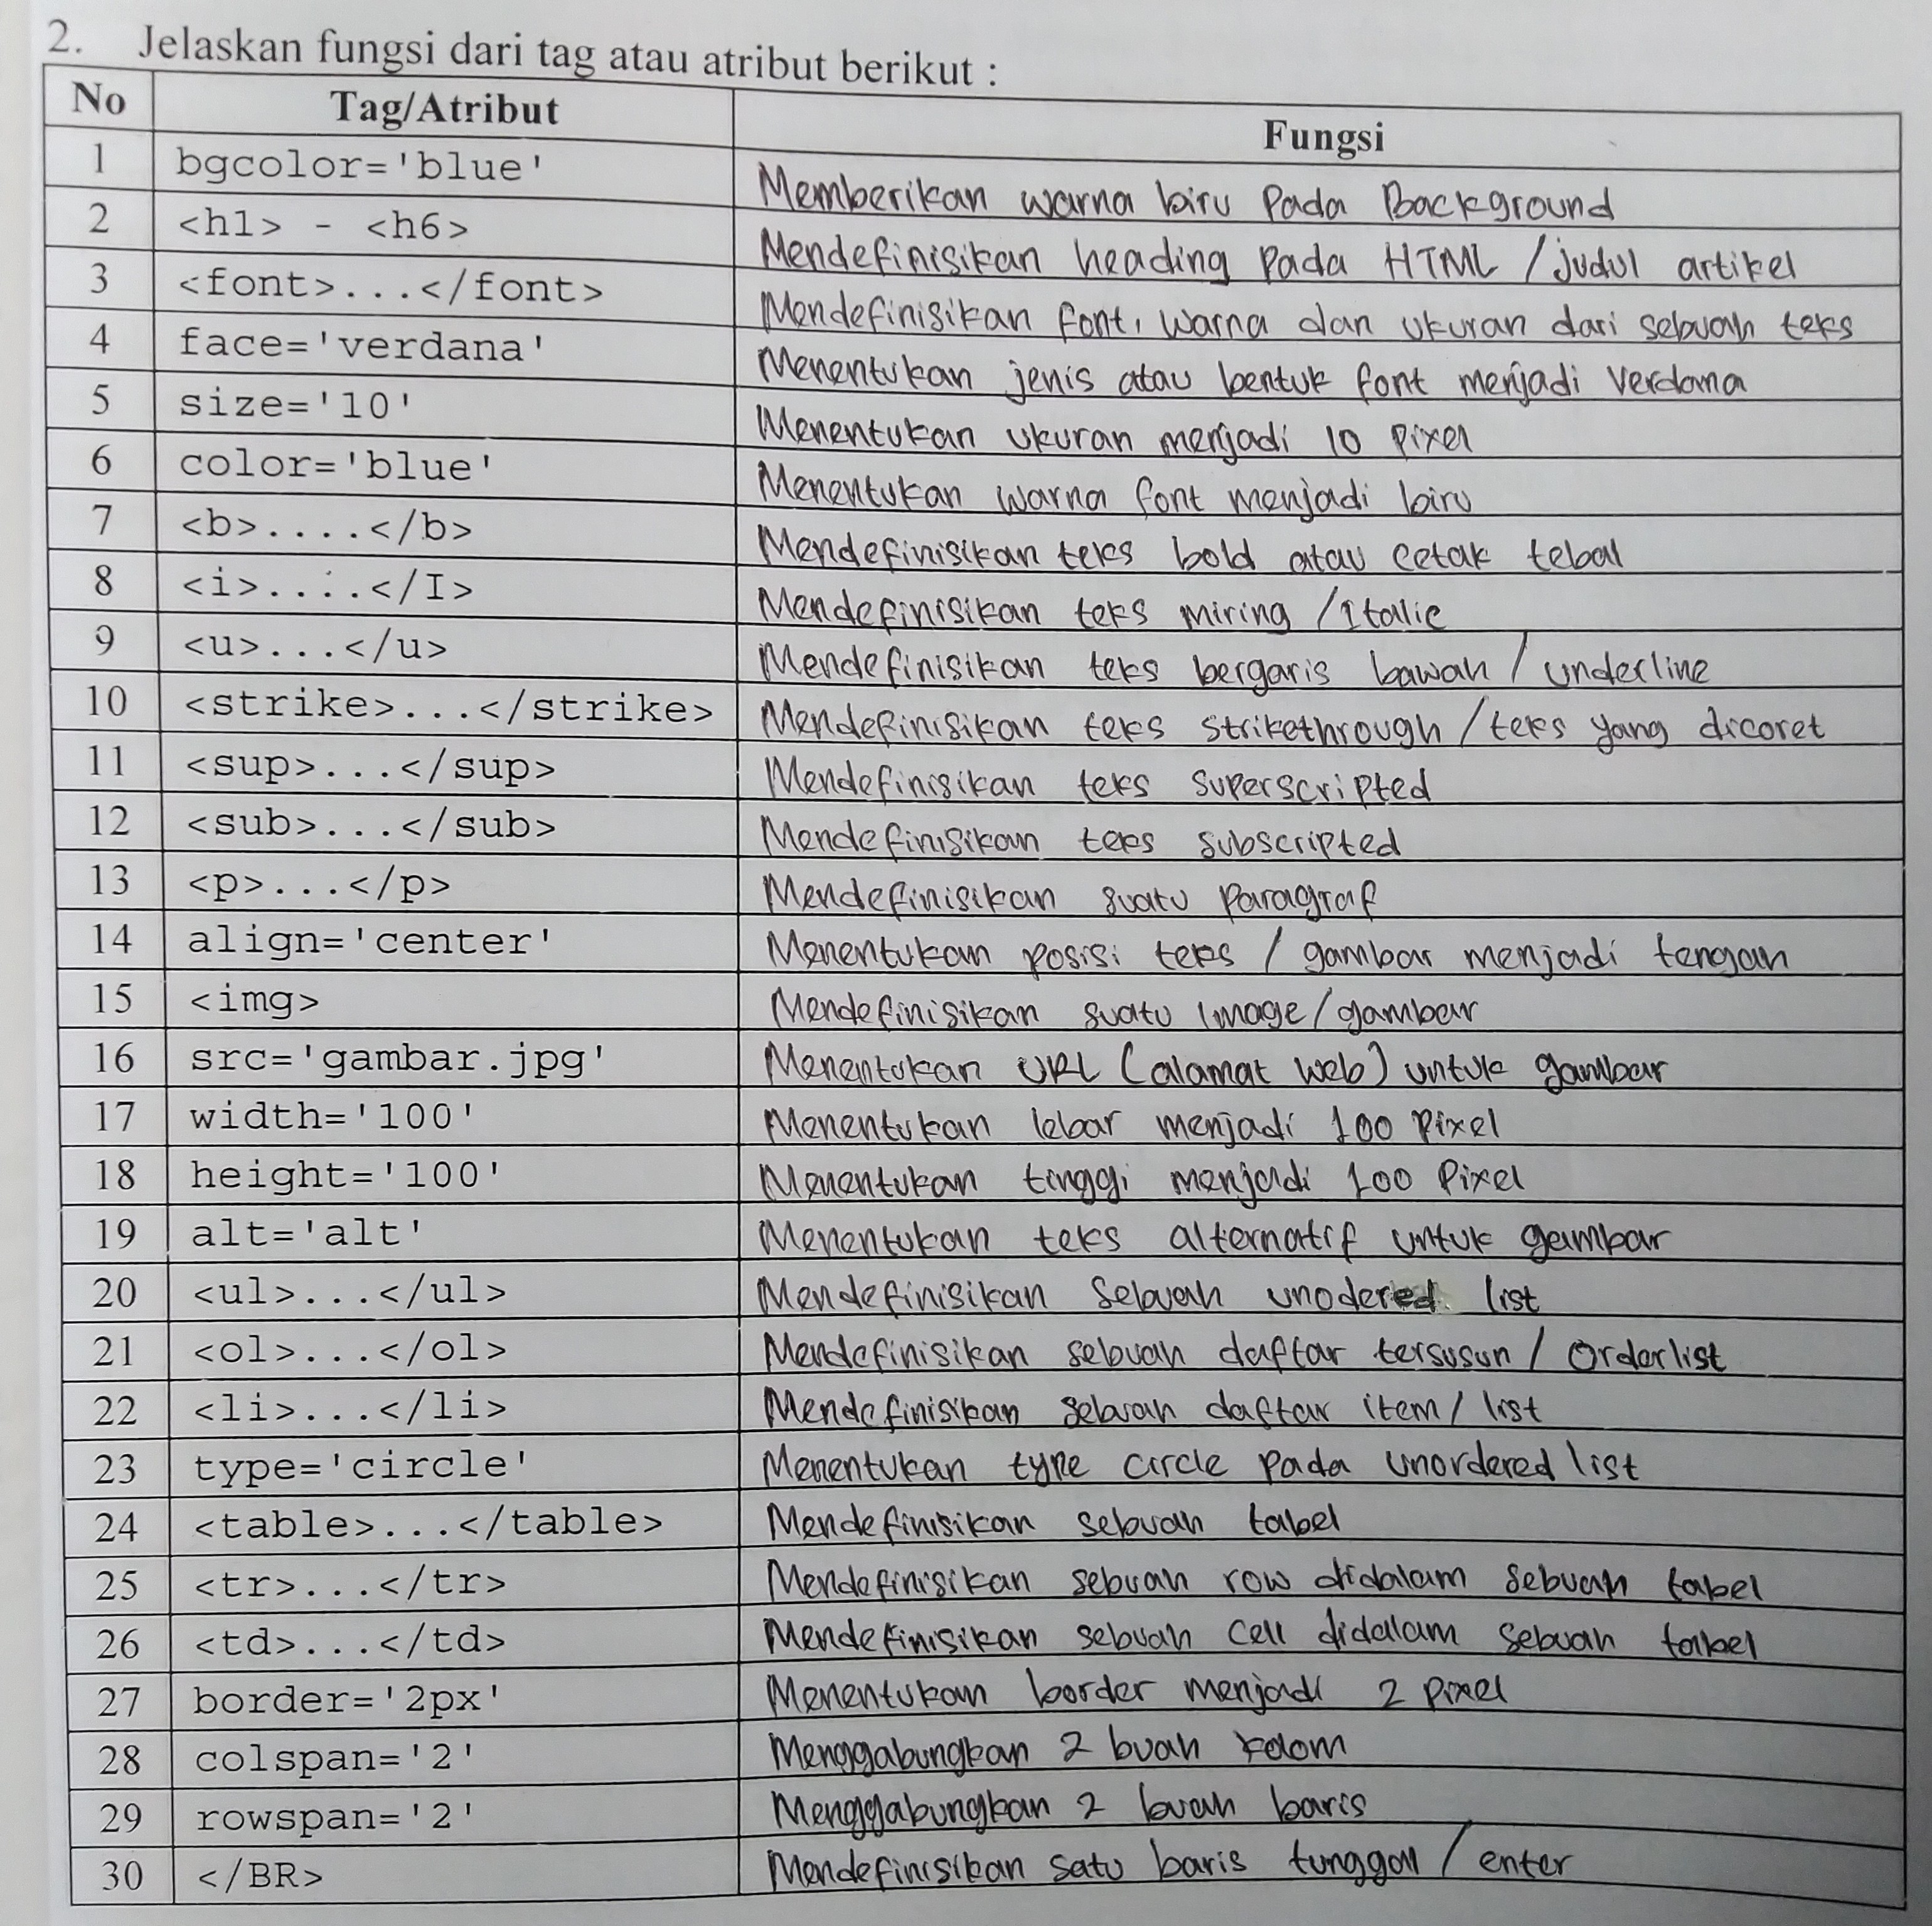 2. Jelaskan fungsi dari tag atau atribut berikut :
No Tag/Atribut Fungsi
1 bgcolor='blue' Memberikan warna biru pada Background
2 <h1> - <h6> Mendefinisikan heading pada HTML / judul artikel
3 <font>...</font> Mendefinisikan font, warna dan ukuran dari sebuah teks
4 face='verdana' Menentukan jenis atau bentuk font menjadi verdana
5 size='10' Menentukan ukuran menjadi 10 pixel
6 color='blue' Menentukan warna font menjadi biru
7 <b>....</b> Mendefinisikan teks bold atau cetak tebal
8 <i>....</I> Mendefinisikan teks miring /Italic
9 <u>...</u> Mendefinisikan teks bergaris bawah / underline
10 <strike>...</strike> Mendefinisikan teks strikethrough / teks yang dicoret
11 <sup>...</sup> Mendefinisikan teks superscripted
12 <sub>...</sub> Mendefinisikan teks subscripted
13 <p>...</p> Mendefinisikan suatu paragraf
14 align='center' Menentukan posisi teks / gambar menjadi tengah
15 <img> Mendefinisikan suatu image/gambar
16 src='gambar.jpg' Menentukan URL (alamat web) untuk gambar
17 width='100' Menentukan lebar menjadi 100 pixel
18 height='100' Menentukan tinggi menjadi 100 Pixel
19 alt='alt' Menentukan teks alternatif untuk gambar
20 <ul>...</ul> Mendefinisikan Sebuah unodered list
21 <ol>...</ol> Mendefinisikan sebuah daftar tersusun / Orderlist
22 <li>...</li> Mendefinisikan sebuah daftar item / list
23 type='circle' Menentukan type circle pada unordered list
24 <table>...</table> Mendefinisikan sebuah tabel
25 <tr>...</tr> Mendefinisikan sebuah row didalam sebuah tabel
26 <td>...</td> Mendefinisikan sebuah cell didalam sebuah tabel
27 border='2px' Menentukan border menjadi 2 pixel
28 colspan='2' Menggabungkan 2 buah kolom
29 rowspan='2' Menggabungkan 2 buah baris
30 </BR> Mendefinisikan satu baris tunggal / enter